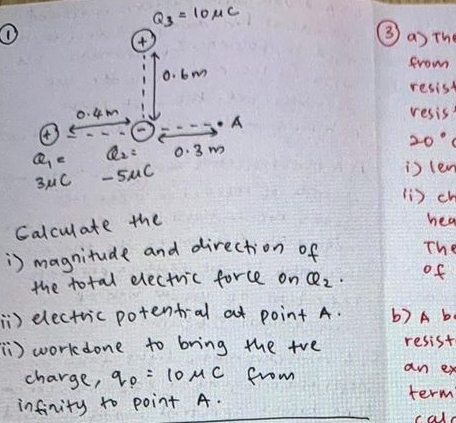 ① Q₃ = 10μC
+
0.6m
0.4m
+ − • A
Q₁ = Q₂ = 0.3m
3μC -5μC
Calculate the
i) magnitude and direction of
the total electric force on Q₂.
ii) electric potential at point A.
ii) workdone to bring the +ve
charge, q₀ = 10 μC from
infinity to point A.
③ a) The
from
resist
resis
20°
i) len
ii) ch
hea
The
of
b) A b
resist
an ex
term
calc